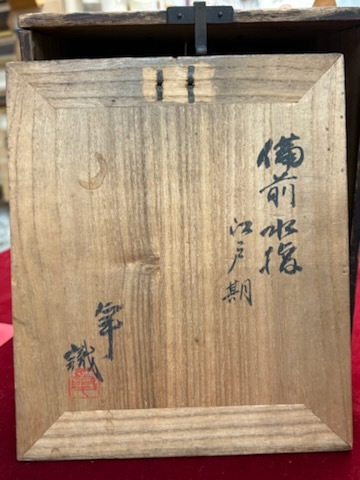 備前水指
江戸期
識